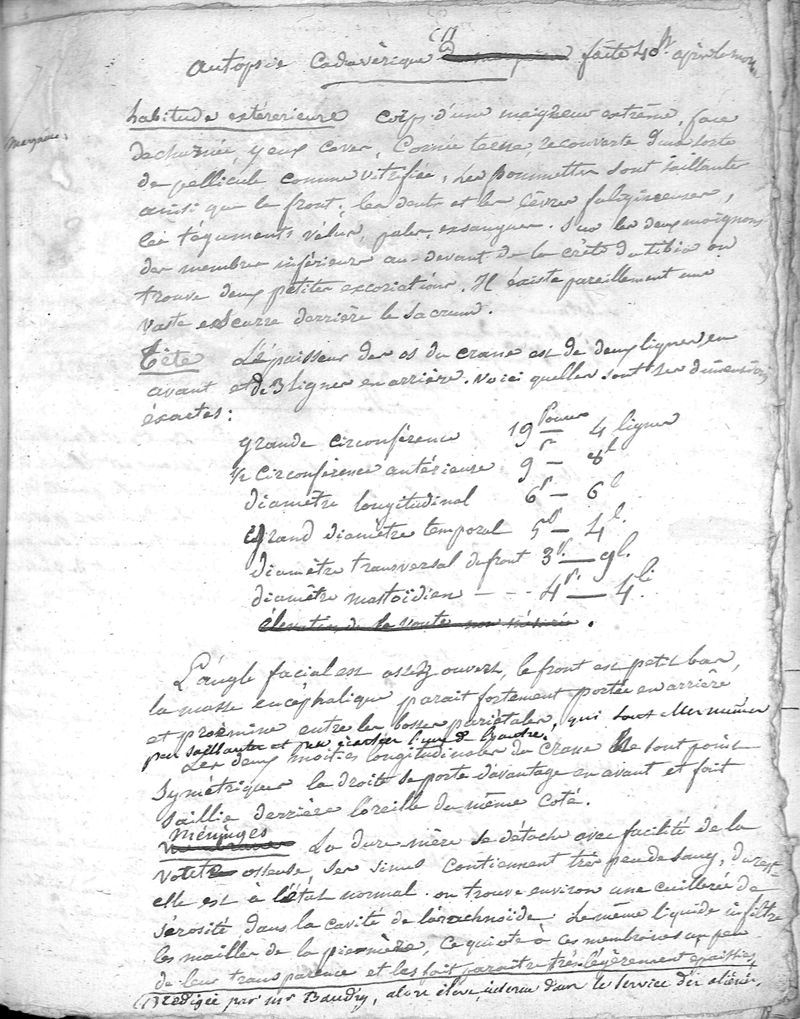 autopsie Cadavérique (1) faite 40h après la mort
habitude extérerieure Corps d'une maigreur extrême, face
décharnée, yeux caves, Cornée terne, recouverte d'une sorte
de pellicule comme vitrifiée, les pommettes sont saillantes
ainsi que le front; les dents et les lèvres fuligineuses,
les téguments velus, pales, exsangues. Sur les deux moignons
des membres inférieurs au-devant de la crête du tibia on
trouve deux petites excoriations. Il existe pareillement une
vaste escarre derrière le sacrum.
Tête L'épaisseur des os du crane est de deux lignes en
avant et de 3 lignes en arrière. Voici quelles sont ses dimensions
exactes:
grande circonférence 19 Pouces — 4 lignes
1/2 Circonférence antérieure 9 p — 8 l
diamètre longitudinal 6 p — 6 l
grand diamètre temporal 5 p — 4 l.
diamètre transversal du front 3 p. — 9 l.
diamètre mastoïdien - - - 4 p. — 4 l.
élévation de la voute non mésurée.
L'angle facial est assez ouvert, le front est petit bas,
la masse encéphalique parait fortement portée en arrière
et proémine entre les bosses pariétales, qui sont elles mêmes
peu saillantes et peu écartées l'une de l'autre.
Les deux moitiés longitudinales du crane ne sont point
symétriques la droite se porte d'avantage en avant et fait
saillie derrière l'oreille du même coté.
Méninges
La dure mère se détache avec facilité de la
voute osseuse, ses sinus contiennent très peu de sang, du reste
elle est à l'état normal. on trouve environ une cuillerée de
sérosité dans la cavité de l'arachnoïde. Le même liquide infiltre
les mailles de la pie-mère, ce qui ote à ces membranes un peu
de leur transparence et les fait paraître très légèrement épaissies
(1) rédigée par mr Baudry, alors élève interne dans le service des aliénés.